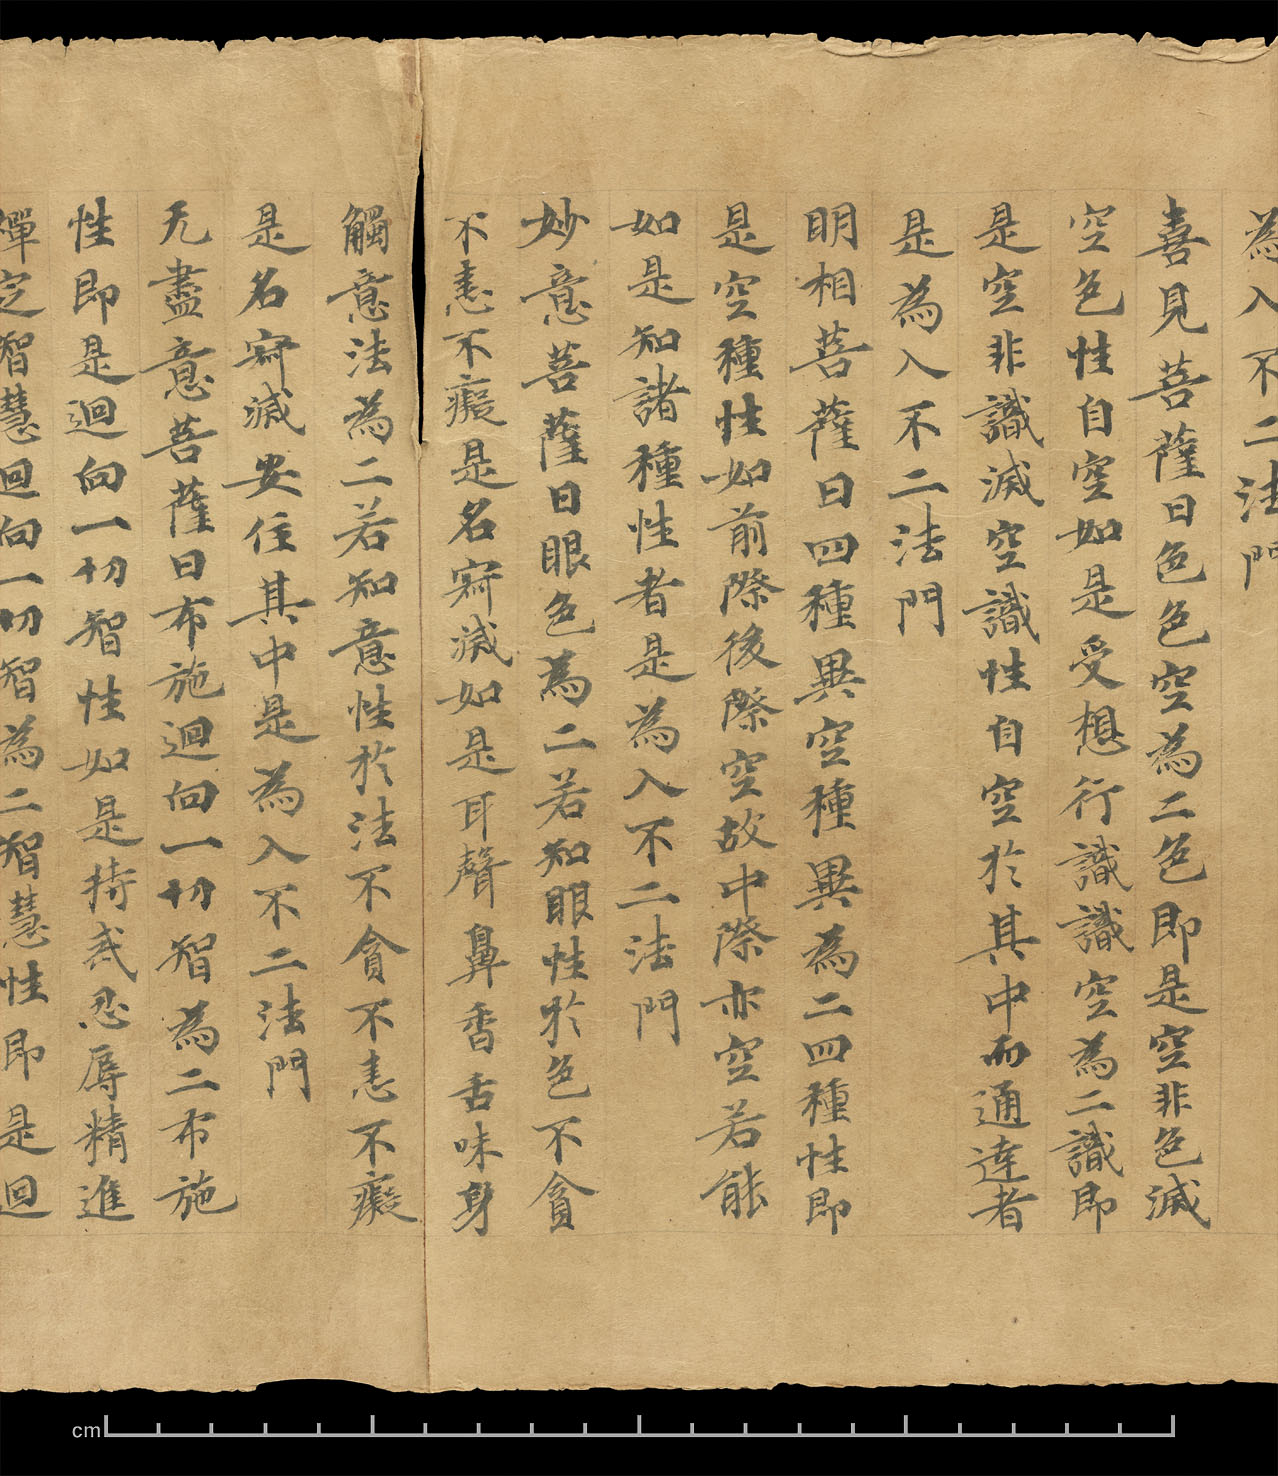 為入不二法門
喜見菩薩曰色色空為二色即是空非色滅
空色性自空如是受想行識識空為二識即
是空非識滅空識性自空於其中而通達者
是為入不二法門
明相菩薩曰四種異空種異為二四種性即
是空種性如前際後際空故中際亦空若能
如是知諸種性者是為入不二法門
妙意菩薩曰眼色為二若知眼性於色不貪
不恚不癡是名寂滅如是耳聲鼻香舌味身
觸意法為二若知意性於法不貪不恚不癡
是名寂滅安住其中是為入不二法門
无盡意菩薩曰布施迴向一切智為二布施
性即是迴向一切智性如是持戒忍辱精進
禪定智慧迴向一切智為二智慧性即是迴
cm